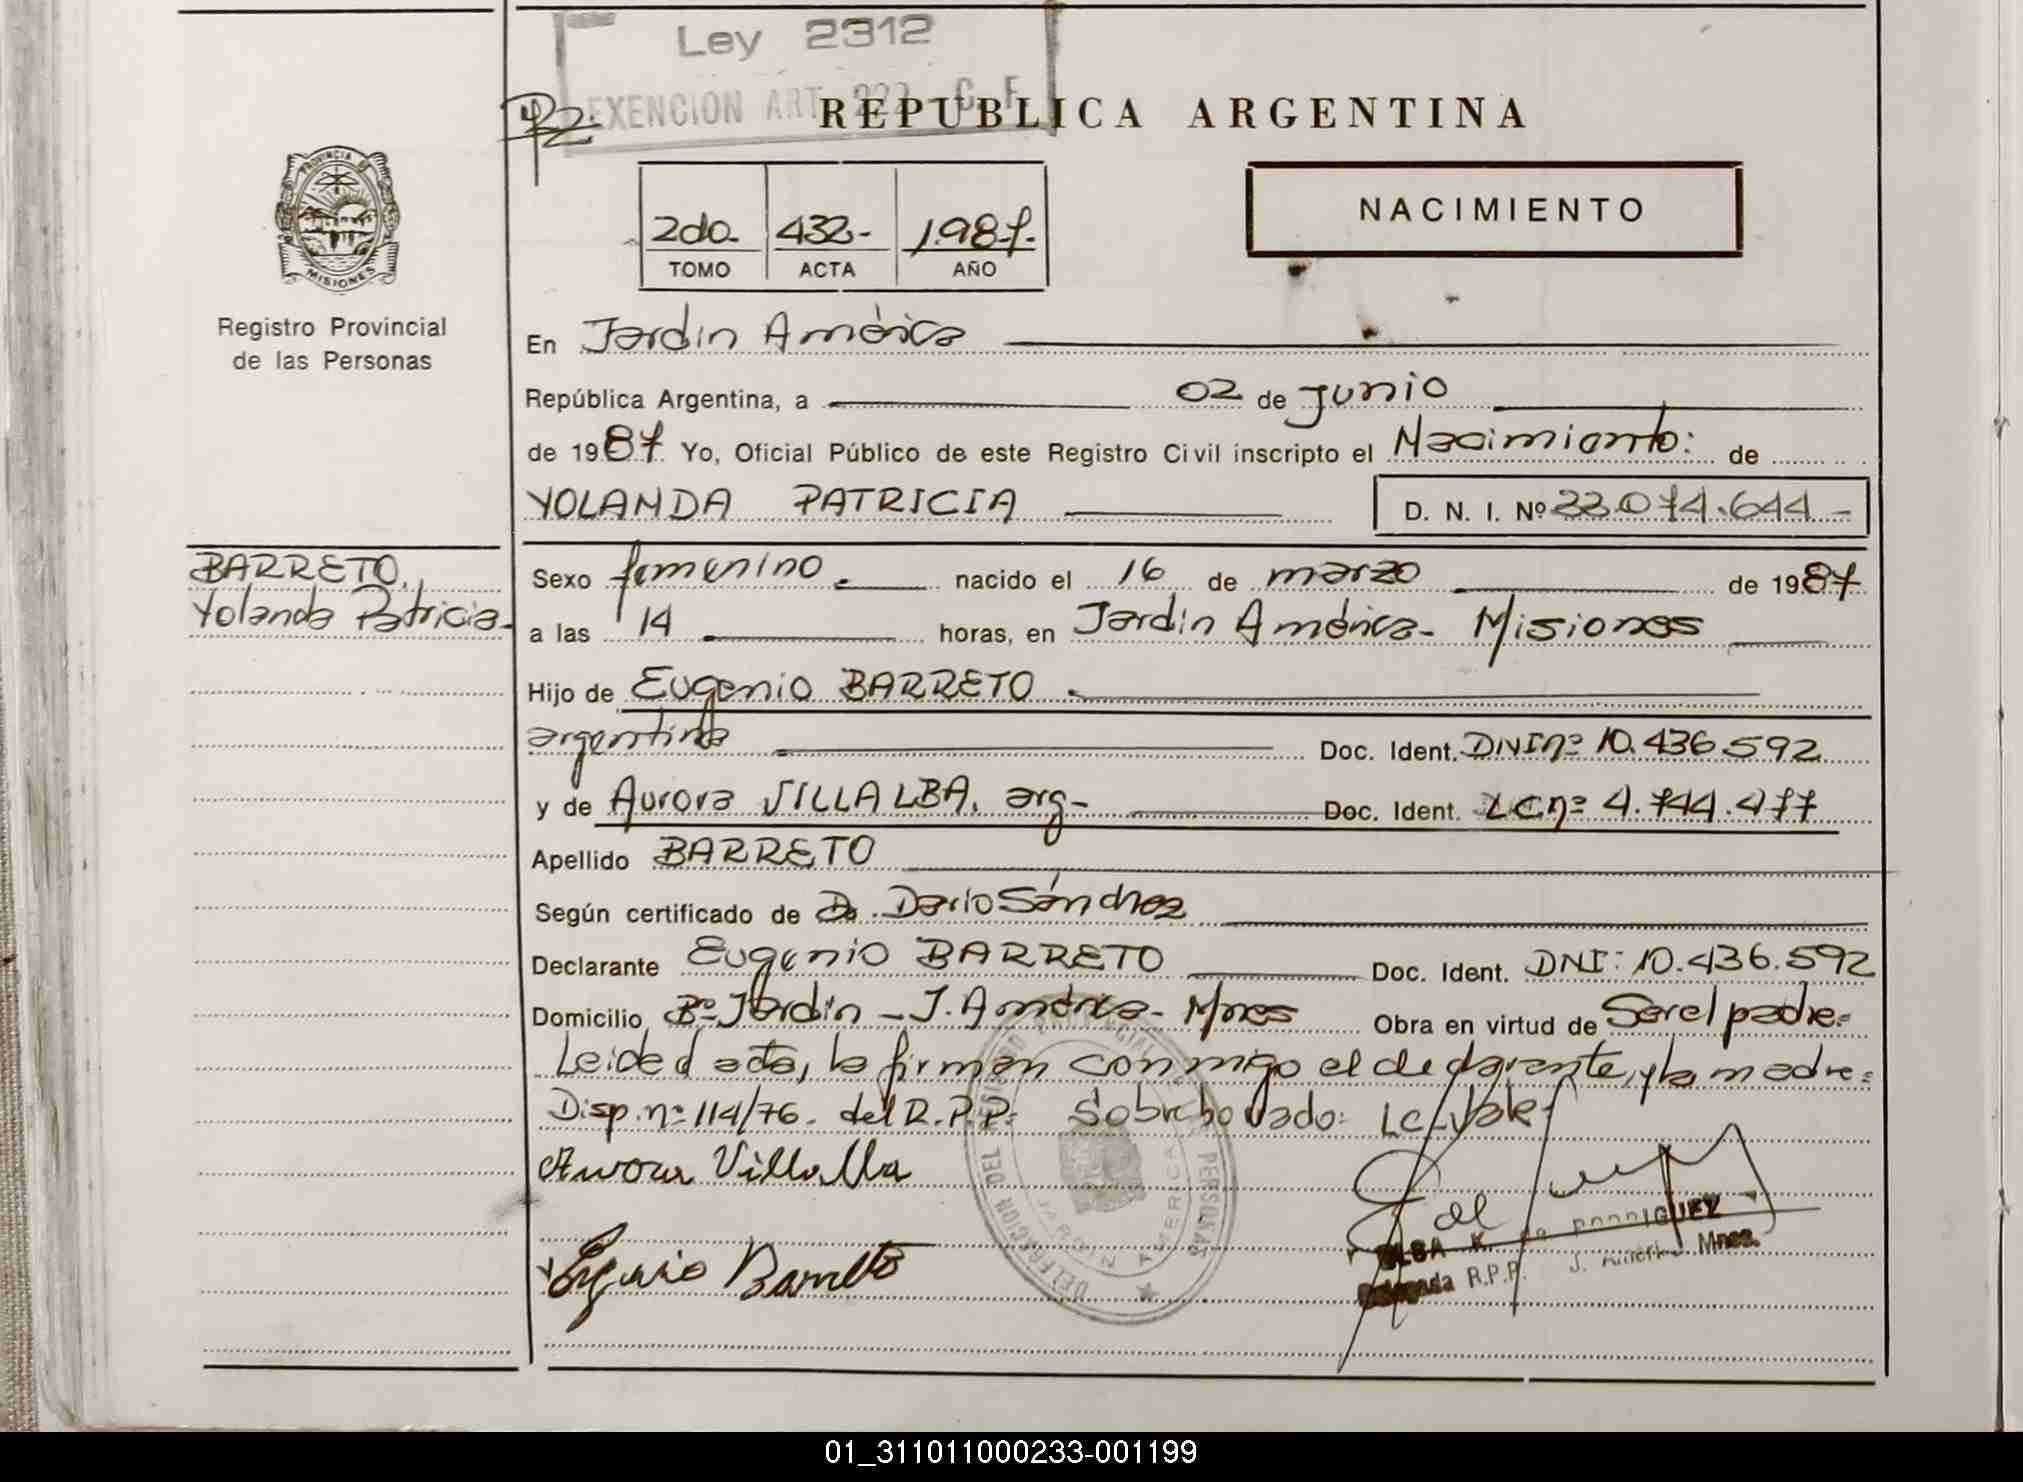 Ley 2312
EXENCION ART. 222 C. F.
REPUBLICA ARGENTINA
PROVINCIA DE
MISIONES
Registro Provincial
de las Personas
2do. 432- 1.987.-
TOMO ACTA AÑO
NACIMIENTO
En Jardín América
República Argentina, a 02 de junio
de 1987 Yo, Oficial Público de este Registro Civil inscripto el Nacimiento: de
YOLANDA PATRICIA D. N. I. Nº 33.074.644.-
BARRETO,
Yolanda Patricia-
Sexo femenino. nacido el 16 de marzo de 1987
a las 14 horas, en Jardín América- Misiones
Hijo de Eugenio BARRETO
argentino Doc. Ident. DNI nº 10.436.592
y de Aurora VILLALBA, arg- Doc. Ident. LC nº 4.744.477
Apellido BARRETO
Según certificado de Darío Sánchez
Declarante Eugenio BARRETO Doc. Ident. DNI: 10.436.592
Domicilio Bº Jardín - J. América- Mnes Obra en virtud de Ser el padre.=
Leída el acta, la firman conmigo el declarante, y la madre=
Disp. nº 114/76. del R.P.P.= Sobreborrado: LC-Vale-
Aurora Villalba
Eugenio Barreto
DELEGACION DEL PERSONAS
JARDIN AMERICA
ELSA K. de RODRIGUEZ
Delegada R.P.P. J. América Mnes.
01_311011000233-001199